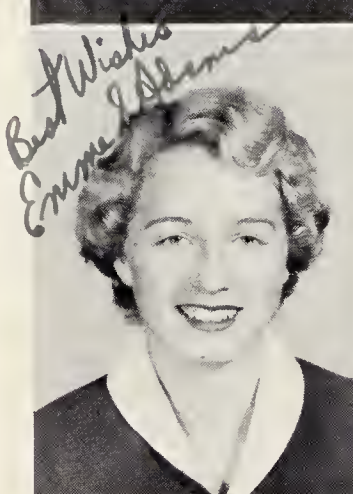 Best Wishes
Emma J Adams